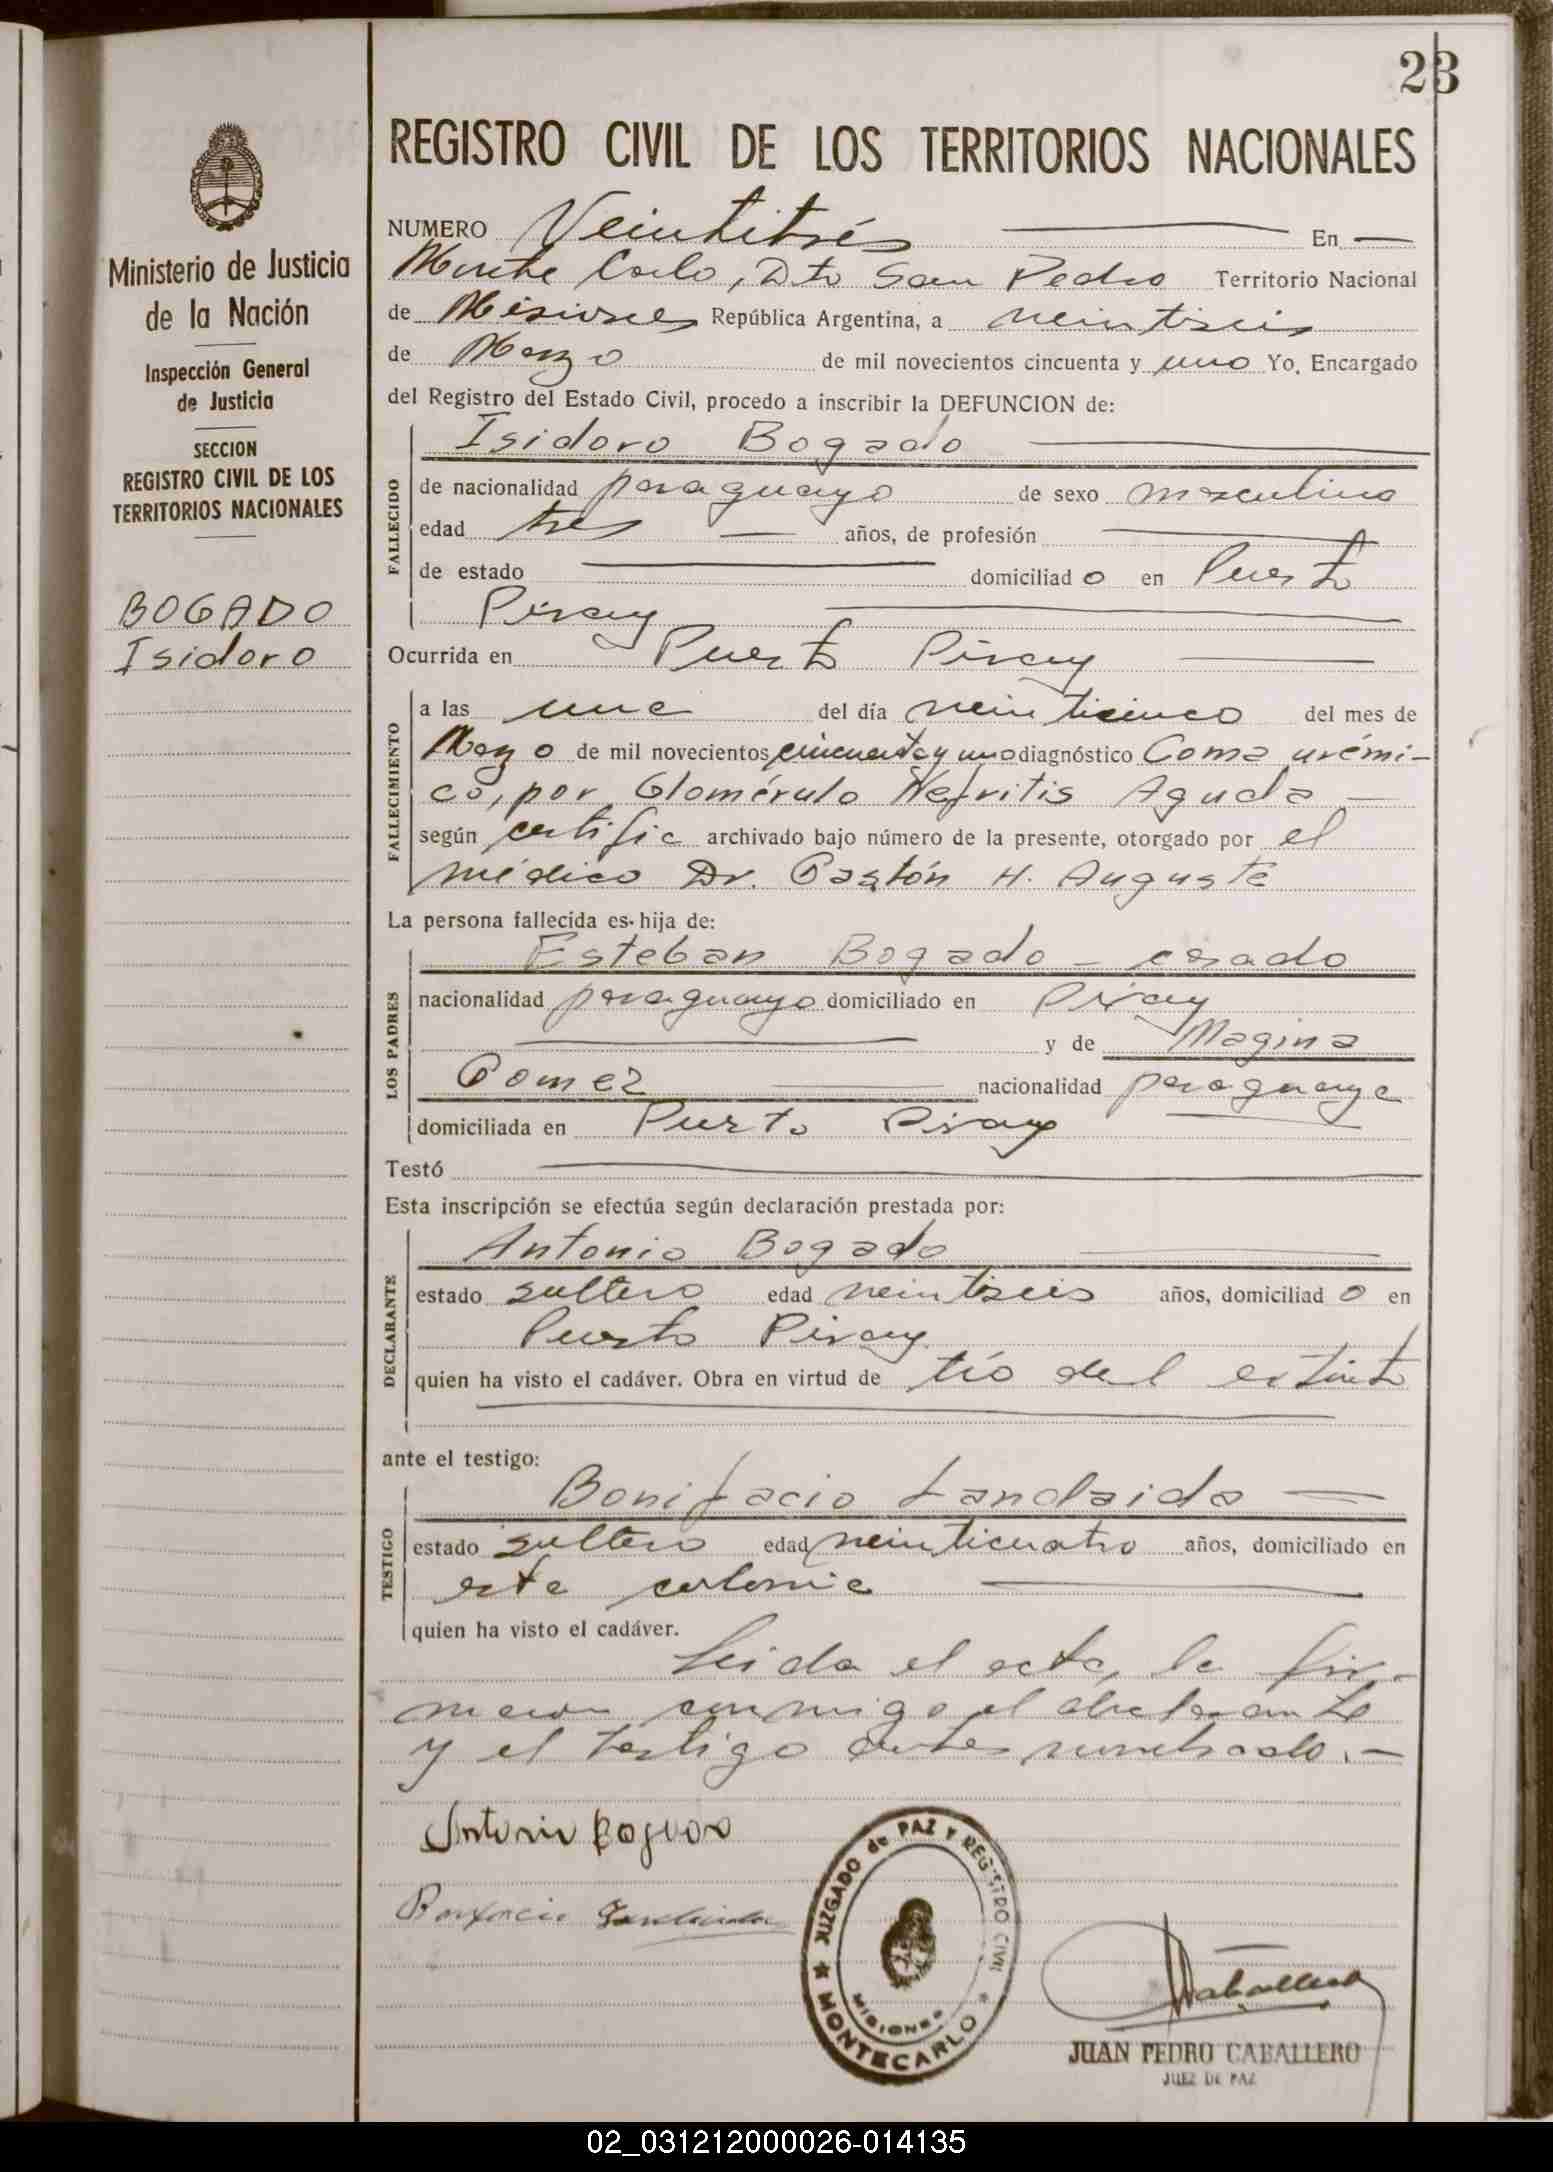 23
REGISTRO CIVIL DE LOS TERRITORIOS NACIONALES
Ministerio de Justicia
de la Nación
Inspección General
de Justicia
SECCION
REGISTRO CIVIL DE LOS
TERRITORIOS NACIONALES
BOGADO
Isidoro
NUMERO Veintitrés En
Monte Carlo, Dto San Pedro Territorio Nacional
de Misiones República Argentina, a veintiseis
de Marzo de mil novecientos cincuenta y uno Yo, Encargado
del Registro del Estado Civil, procedo a inscribir la DEFUNCION de:
FALLECIDO
Isidoro Bogado
de nacionalidad paraguayo de sexo masculino
edad tres — años, de profesión
de estado domiciliado en Puerto
Piray
Ocurrida en Puerto Piray
FALLECIMIENTO
a las una del día veinticinco del mes de
Marzo de mil novecientos cincuenta y uno diagnóstico Coma urémi-
co, por Glomérulo Nefritis Aguda —
según certific archivado bajo número de la presente, otorgado por el
médico Dr. Gastón H. Auguste
La persona fallecida es hija de:
LOS PADRES
Esteban Bogado - casado
nacionalidad paraguayo domiciliado en Piray
y de Magina
Gomez nacionalidad paraguaya
domiciliada en Puerto Piray
Testó
Esta inscripción se efectúa según declaración prestada por:
DECLARANTE
Antonio Bogado
estado soltero edad veintiseis años, domiciliado en
Puerto Piray
quien ha visto el cadáver. Obra en virtud de tío del extinto
ante el testigo:
TESTIGO
Bonifacio Landaida
estado soltero edad veinticuatro años, domiciliado en
esta colonia
quien ha visto el cadáver.
Leida el acta, la fir-
maron conmigo el declarante
y el testigo antes nombrado.-
Antonio Bogado
Bonifacio Landaida
JUZGADO de PAZ Y REGISTRO CIVIL
MISIONES
MONTECARLO
Caballero
JUAN PEDRO CABALLERO
JUEZ DE PAZ
02_031212000026-014135